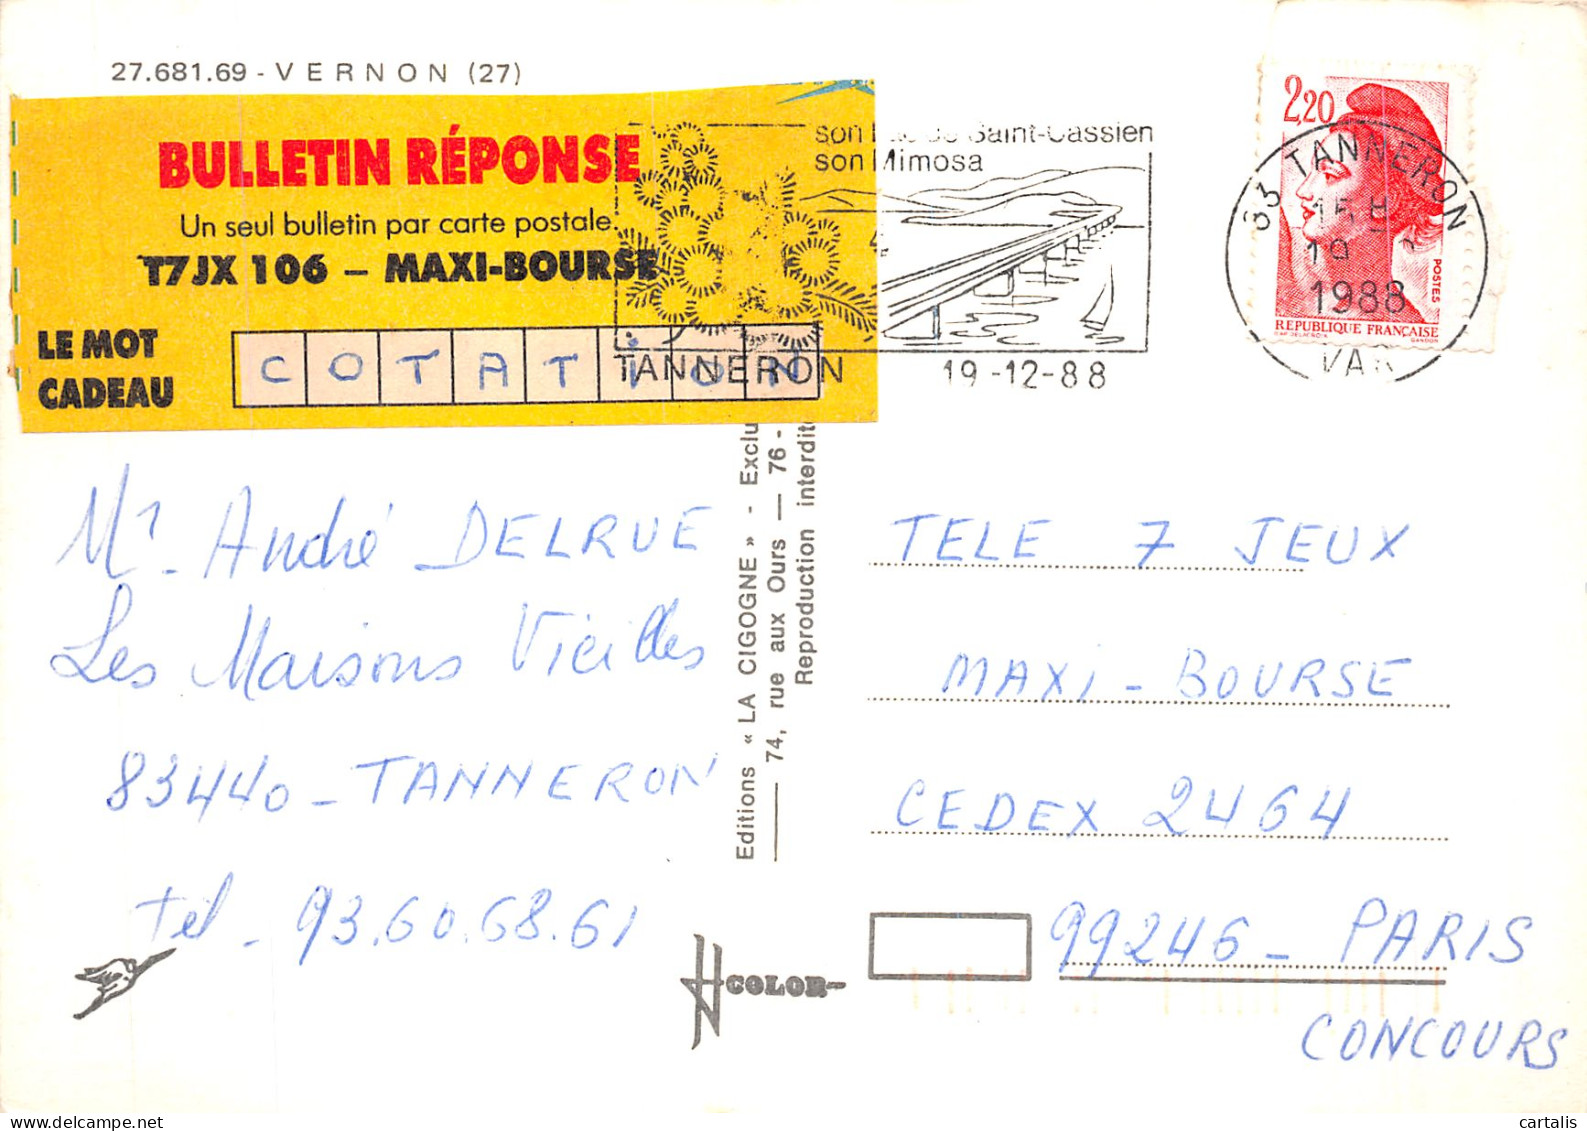 27.681.69 - VERNON (27)
BULLETIN RÉPONSE
Un seul bulletin par carte postale.
T7JX 106 – MAXI-BOURSE
LE MOT
CADEAU
COTATION
son Saint-Cassien
son Mimosa
TANNERON
19-12-88
83 TANNERON
15 H
19
1988
VAR
2,20
POSTES
REPUBLIQUE FRANÇAISE
GANDON
Mr. André DELRUE
Les Maisons Vieilles
83440 - TANNERON
tel - 93.60.68.61
Editions « LA CIGOGNE » - Exclu
74, rue aux Ours — 76 -
Reproduction interdite
TELE 7 JEUX
MAXI - BOURSE
CEDEX 2464
99246 - PARIS
CONCOURS
COLOR
cartalis